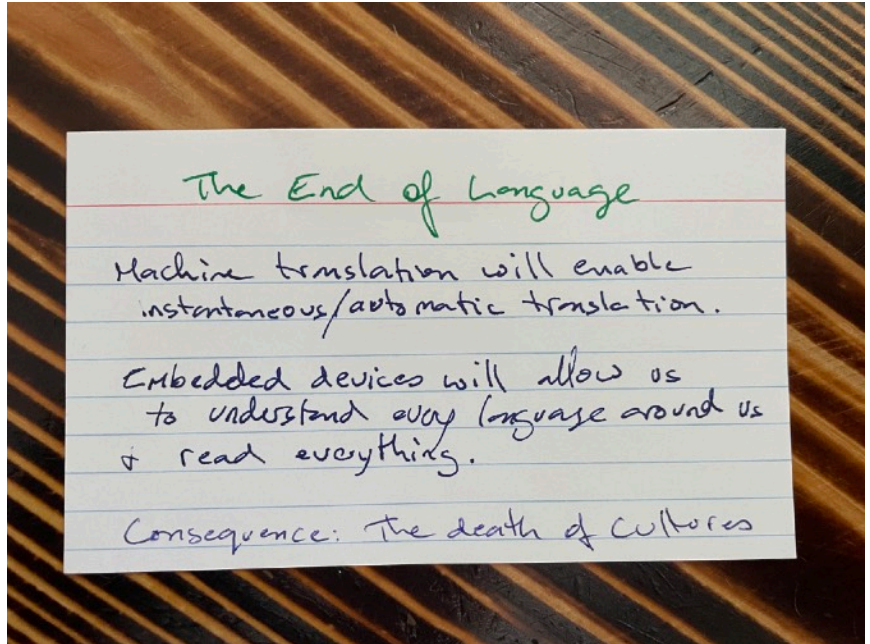 The End of Language
Machine translation will enable
instantaneous/automatic translation.
Embedded devices will allow us
to understand every language around us
& read everything.
Consequence: The death of cultures